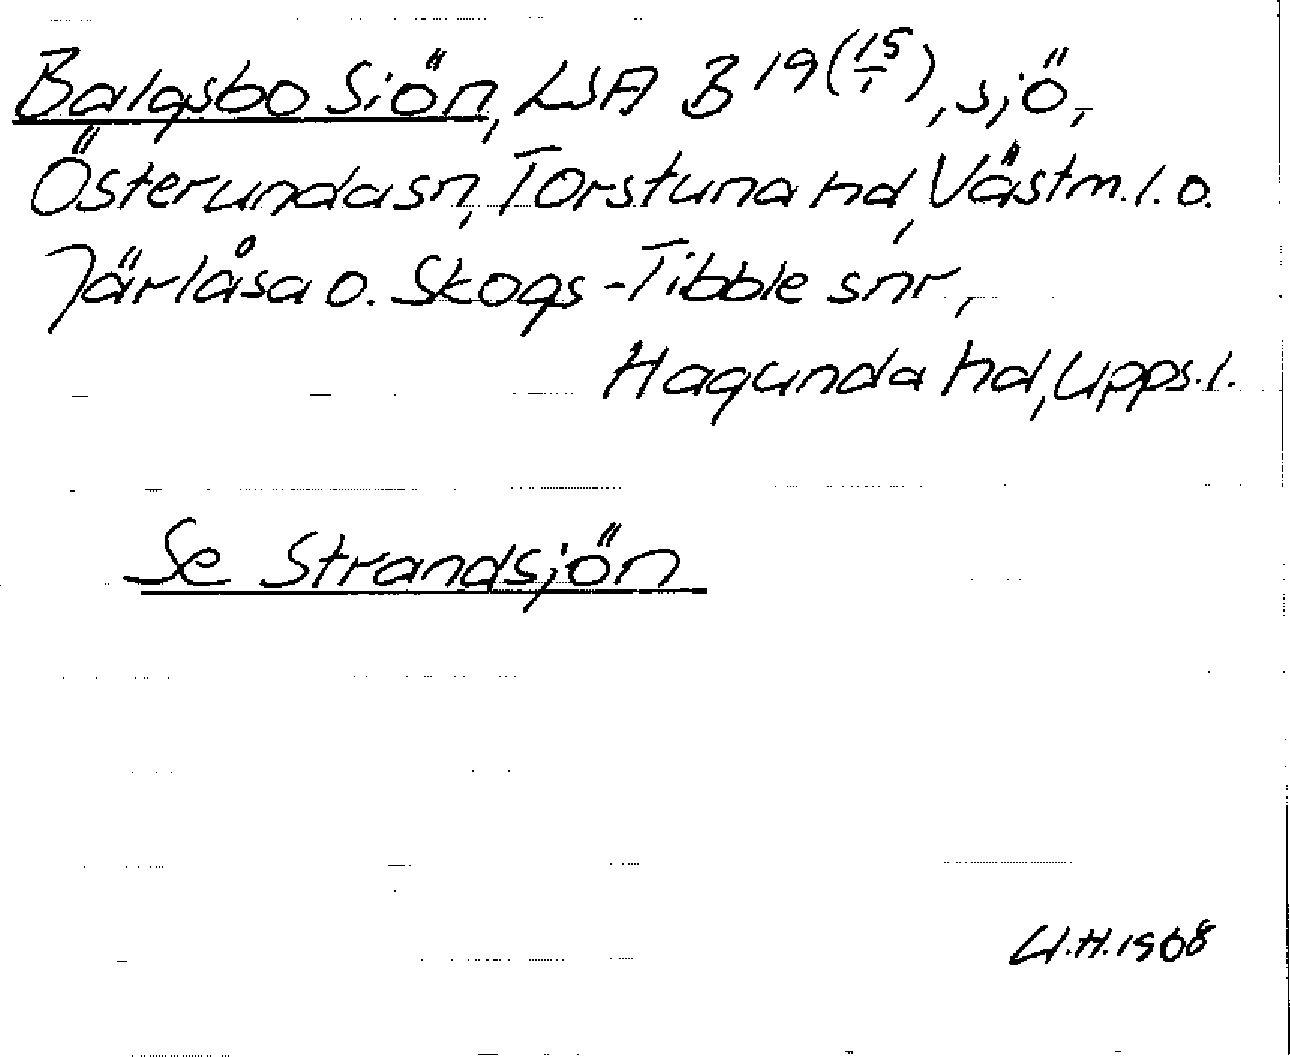 Balgsbo Siön, LSA B 19 (15/1), sjö,
Österunda sn, Torstuna hd, Västm. l. o.
Järlåsa o. Skogs-Tibble snr,
Hagunda hd, Upps. l.
Se Strandsjön
H. 1968